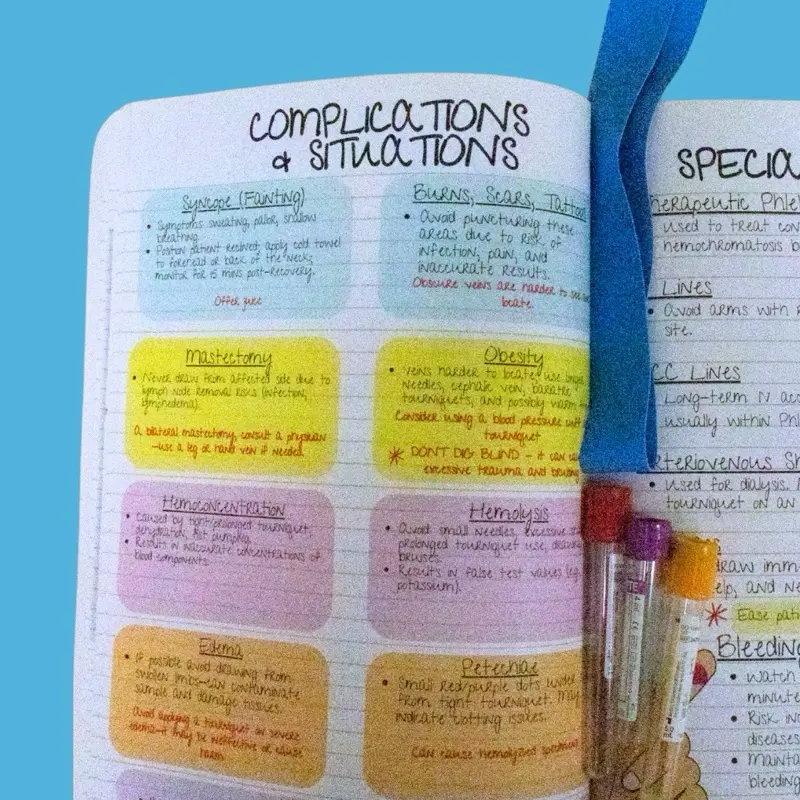 COMPLICATIONS
& SITUATIONS
Syncope (Fainting)
• Symptoms sweating, pallor, shallow
breathing.
• Position patient reclined, apply cold towel
to forehead or back of the neck,
monitor for 15 mins post-recovery.
Offer juice
Burns, Scars, Tattoo
• Avoid puncturing these
areas due to risk of
infection, pain, and
inaccurate results.
Obscure veins are harder to see
locate
Mastectomy
• Never draw from affected side due to
lymph node removal risks (infection,
lymphedema).
A bilateral mastectomy, consult a physician
-use a leg or hand vein if needed.
Obesity
• Veins harder to locate, use longer
needles, cephalic vein, bariatric
tourniquets, and possibly warm
Consider using a blood pressure cuff
tourniquet
* DON'T DIG BLIND - it can
excessive trauma and bruising
Hemoconcentration
• Caused by tight/prolonged tourniquet,
dehydration, fist pumping.
• Results in inaccurate concentrations of
blood components.
Hemolysis
• Avoid small needles, excessive
prolonged tourniquet use, drawing
bruises.
• Results in false test values (e.g.
potassium).
Edema
• If possible avoid drawing from
swollen limbs-can contaminate
sample and damage tissues.
Avoid applying a tourniquet on severe
edema-it may be ineffective or cause
harm
Petechiae
• Small red/purple dots under
from tight tourniquet. May
indicate clotting issues.
Can cause hemolyzed specimens
SPECIA
herapeutic Phle
used to treat con
hemochromatosis
Lines
• Avoid arms with
site.
CC Lines
Long-term IV acc
usually within
teriovenous Sh
• Used for dialysis.
tourniquet on an
draw imm
elp, and
* Ease pati
Bleeding
• Watch
minute
• Risk in
diseases
• Mainta
bleeding